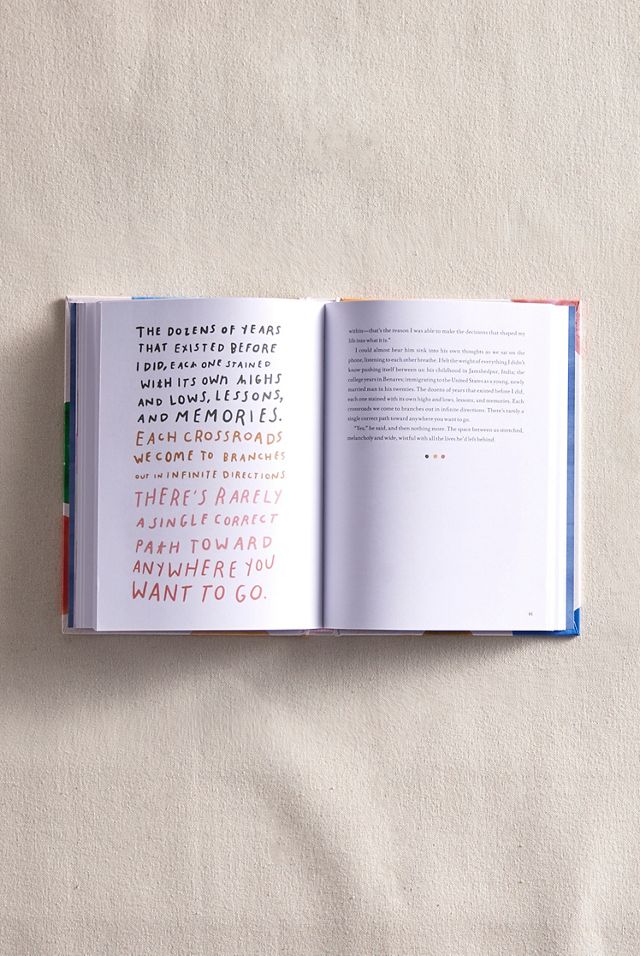 THE DOZENS OF YEARS
THAT EXISTED BEFORE
I DID, EACH ONE STAINED
WITH ITS OWN HIGHS
AND LOWS, LESSONS,
AND MEMORIES.
EACH CROSSROADS
WE COME TO BRANCHES
OUT IN INFINITE DIRECTIONS.
THERE'S RARELY
A SINGLE CORRECT
PATH TOWARD
ANYWHERE YOU
WANT TO GO.
within—that's the reason I was able to make the decisions that shaped my
life into what it is."
I could almost hear him sink into his own thoughts as we sat on the
phone, listening to each other breathe. I felt the weight of everything I didn't
know pushing itself between us: his childhood in Jamshedpur, India; the
college years in Benares; immigrating to the United States as a young, newly
married man in his twenties. The dozens of years that existed before I did,
each one stained with its own highs and lows, lessons, and memories. Each
crossroads we come to branches out in infinite directions. There's rarely a
single correct path toward anywhere you want to go.
"Yes," he said, and then nothing more. The space between us stretched,
melancholy and wide, wistful with all the lives he'd left behind.